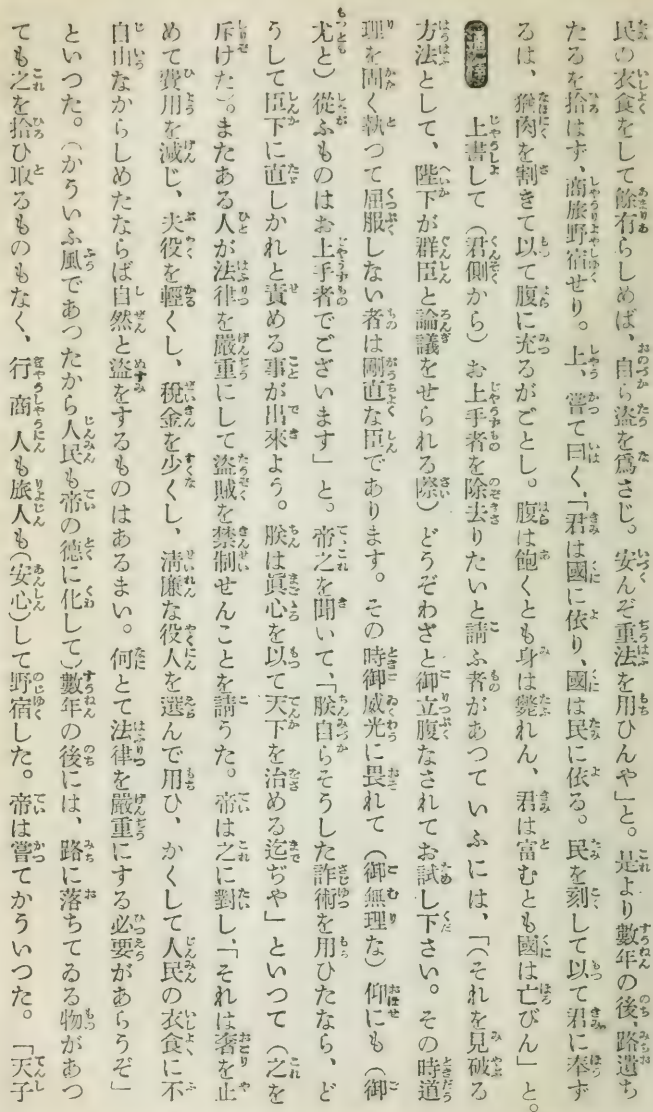 民の衣食をして餘有らしめば、自ら盜を爲さじ。安んぞ重法を用ひんや」と。是より數年の後、路遺ち
たるを拾はず、商旅野宿せり。上、嘗て曰く、「君は國に依り、國は民に依る。民を刻して以て君に奉ず
るは、猶肉を割きて以て腹に充るがごとし。腹は飽くとも身は斃れん、君は富むとも國は亡びん」と。
通解 上書して（君側から）お上手者を除去りたいと請ふ者があつていふには、「（それを見破る
方法として、陛下が群臣と論議をせられる際）どうぞわざと御立腹なされてお試し下さい。その時道
理を固く執つて屈服しない者は剛直な臣であります。その時御威光に畏れて（御無理な）仰にも（御
尤と）從ふものはお上手者でございます」と。帝之を聞いて、「朕自らそうした詐術を用ひたなら、ど
うして臣下に直しかれと責める事が出來よう。朕は眞心を以て天下を治める迄ぢや」といつて（之を
斥けた）。またある人が法律を嚴重にして盜賊を禁制せんことを請うた。帝は之に對し、「それは奢を止
めて費用を減じ、夫役を輕くし、稅金を少くし、淸廉な役人を選んで用ひ、かくして人民の衣食に不
自由なからしめたならば自然と盜をするものはあるまい。何とて法律を嚴重にする必要があらうぞ」
といつた。（かういふ風であつたから人民も帝の德に化して）數年の後には、路に落ちてゐる物があつ
ても之を拾ひ取るものもなく、行商人も旅人も（安心）して野宿した。帝は嘗てかういつた。「天子